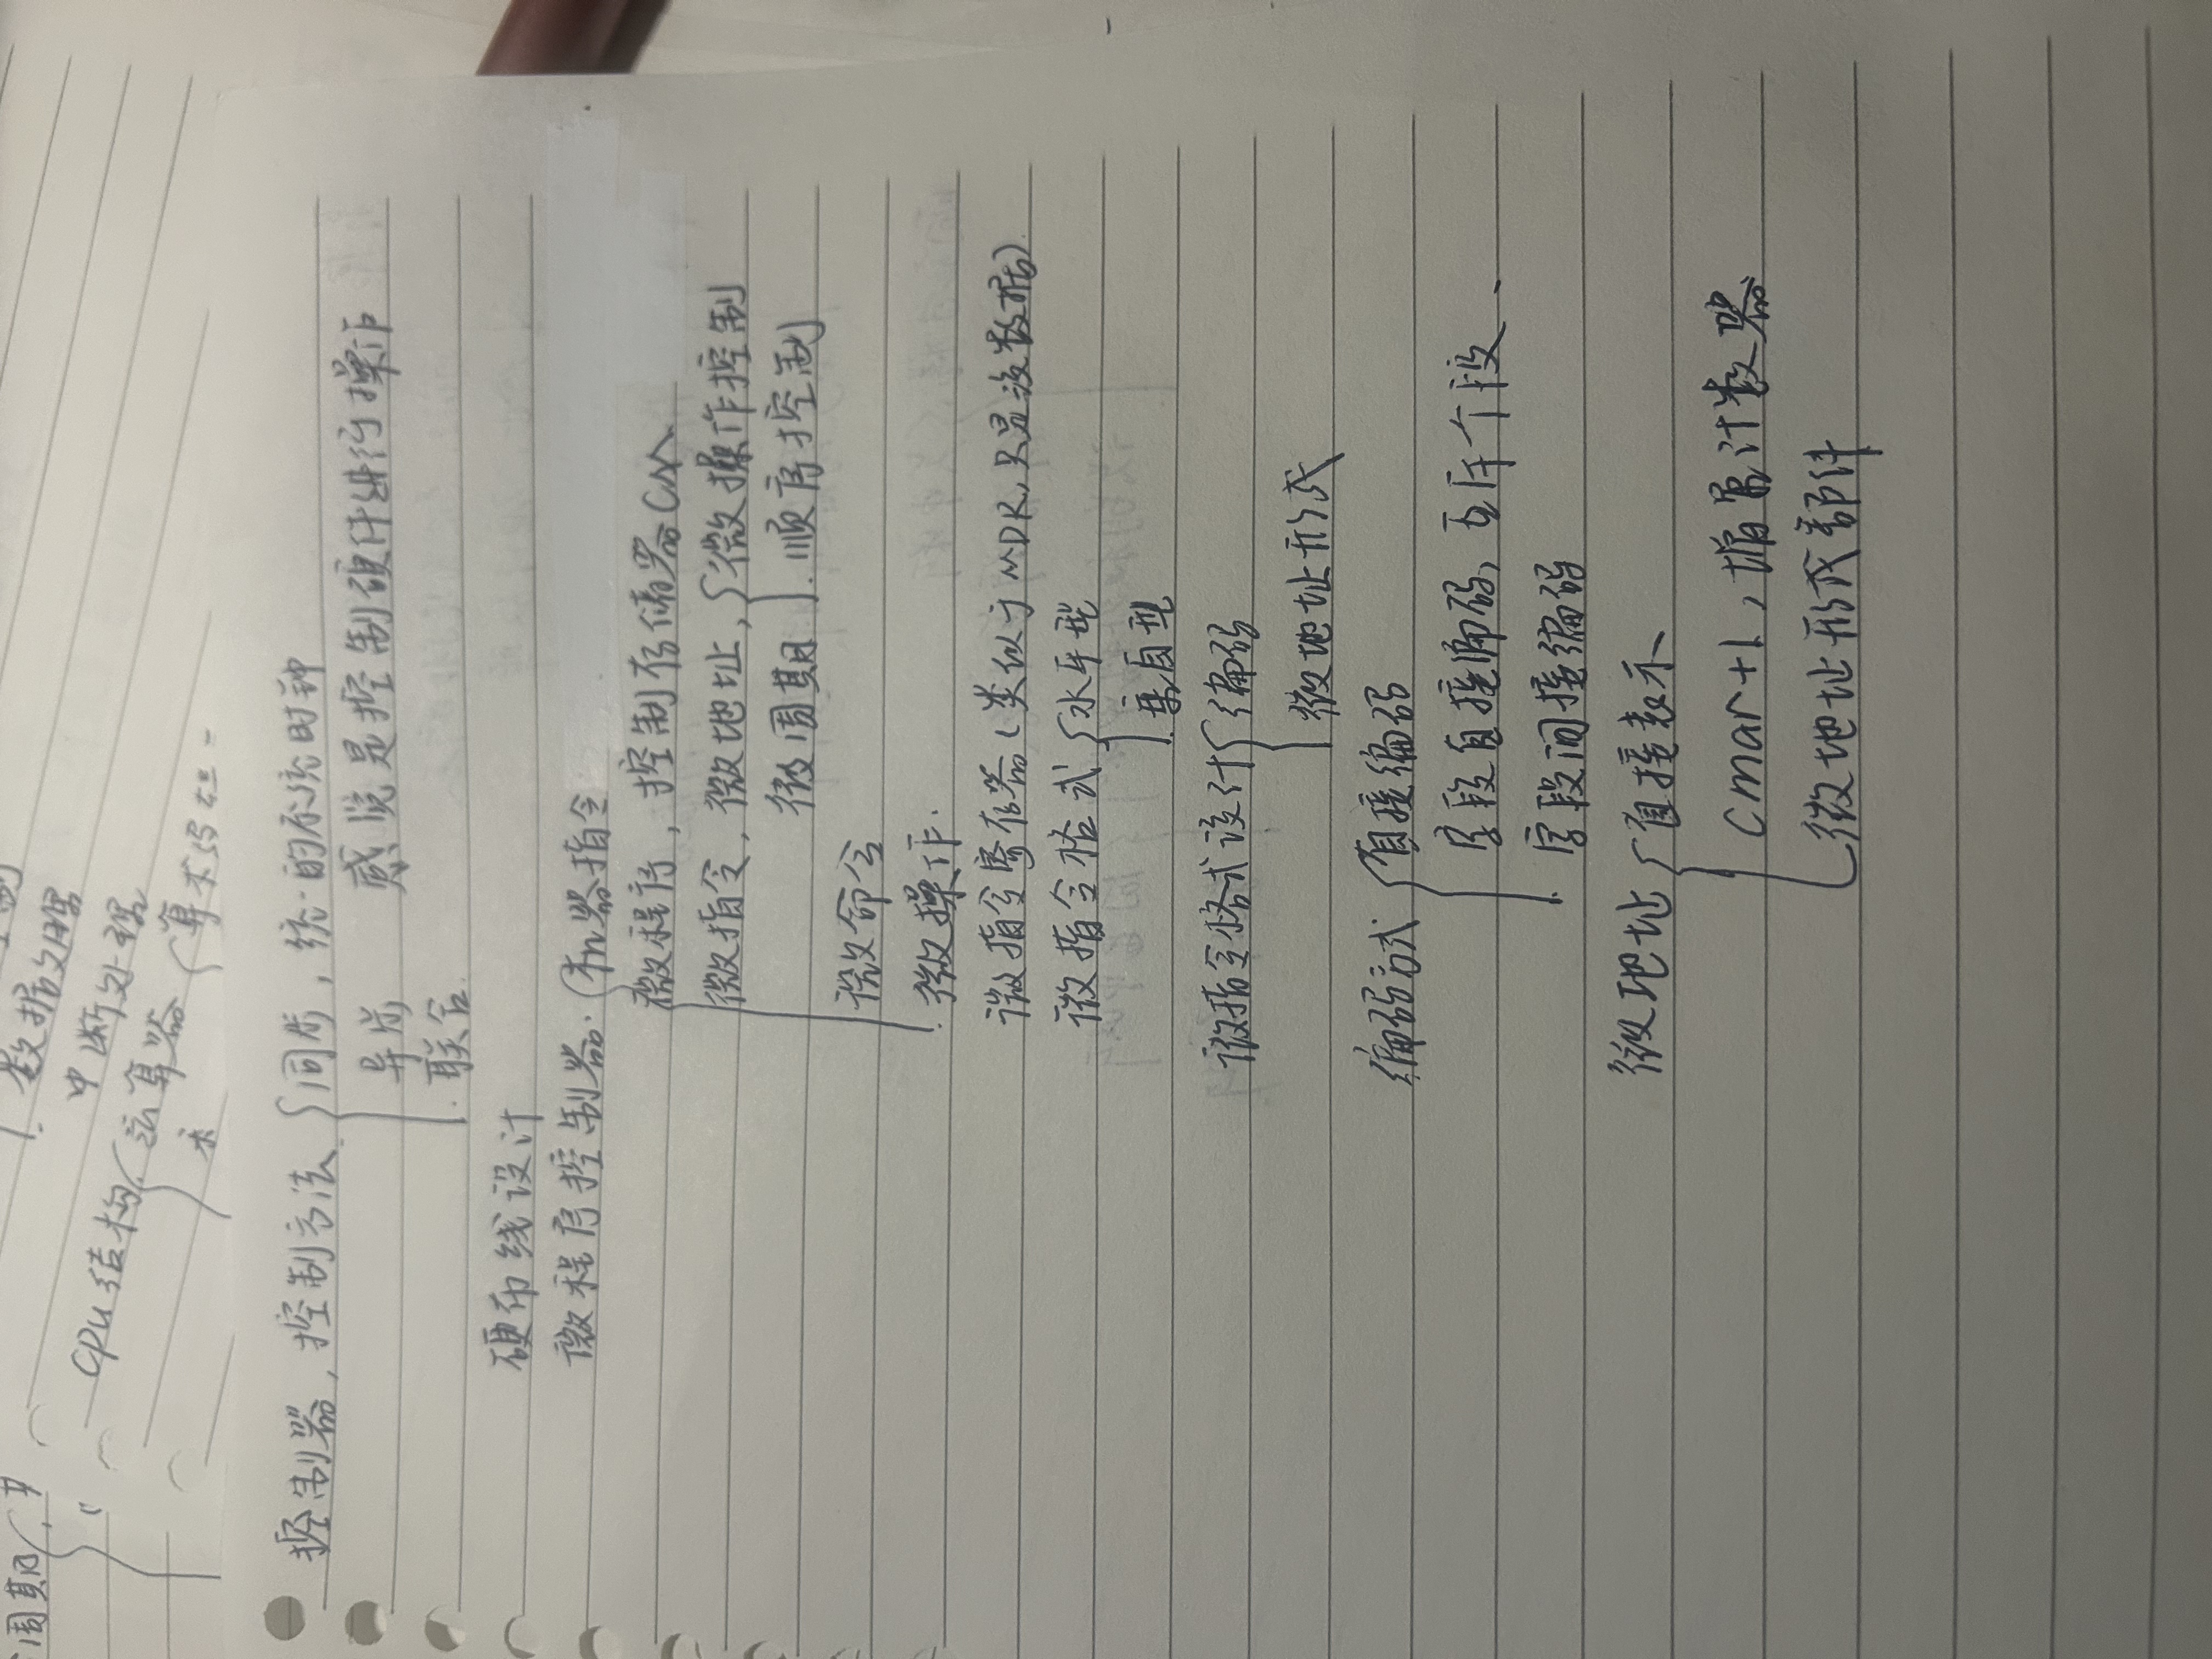 周期
制
数据处理
中断处理
cpu结构
运算器
算术
控制器,控制方法
同步,统一的系统时钟
异步 感觉是控制硬件进行操作
联合.
硬布线设计
微程序控制器. 机器指令
微程序,控制存储器CM
微指令,微地址, 微操作控制
微周期 顺序控制
微命令
微操作.
微指令寄存器(类似于MDR,只是没数据)
微指令格式 水平型
垂直型
微指令格式设计 编码
微地址形成
编码方式 直接编码
字段直接编码,互斥个段、
字段间接编码
微地址 直接表示
cmar+1,增量计数器
微地址形成部件